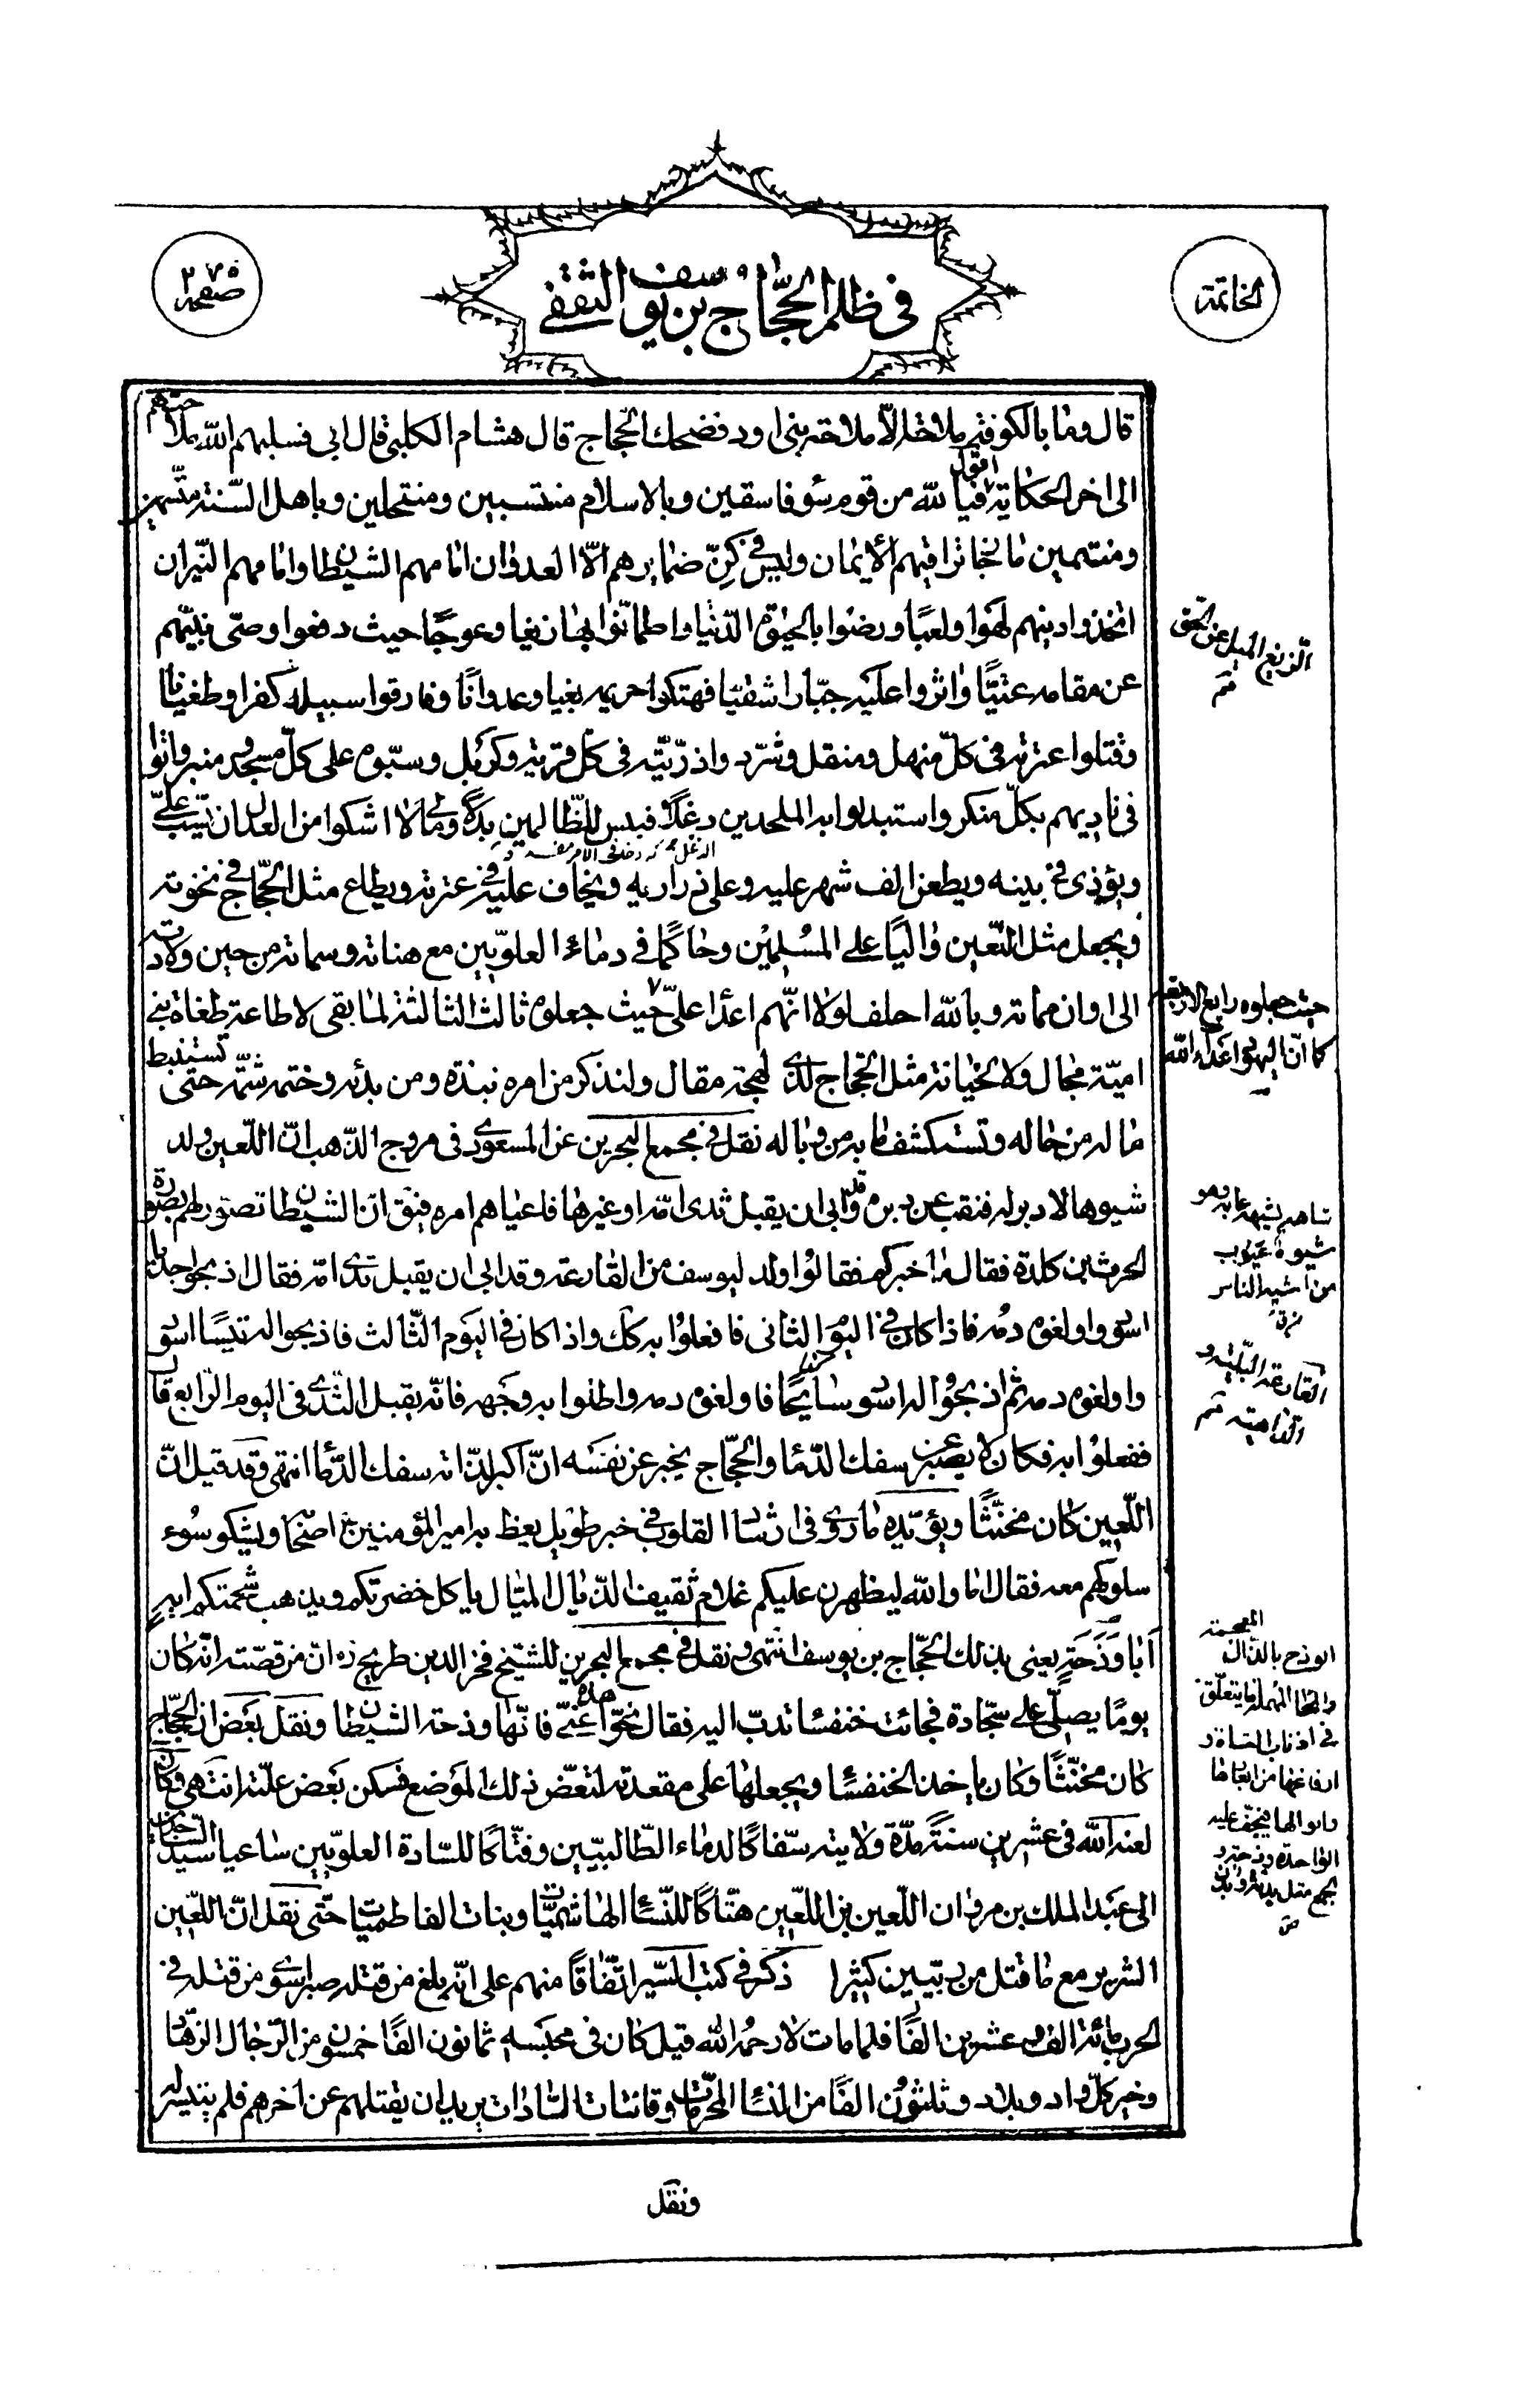 الخاتمة
في ظلم الحجّاج بن يوسف الثقفي
صفحه ٢٧٥
قال وما بالكوفة ملاحة الّا ملاحة بنى اود فضحك الحجّاج قال هشام الكلبي قال ابى فسلبهم الله ملاحتهم
الى اخر الحكاية اقول فيا لله من قوم سوء فاسقين وبالاسلام منتسبين ومنتحلين وباهل السّنة متّسمين
ومنتمين ما فيهم الأيمان وليس في كنّ ضمايرهم الّا العدوان امامهم الشيطان وامامهم النّيران
اتّخذوا دينهم لهوا ولعبًا ورضوا بالحيوة الدّنيا واطمأنّوا بها زيغا وعوجًا حيث دفعوا وصىّ نبيّهم
عن مقامه عتيًّا واثروا عليه جبّارا شقيّا فهتكوا حريمه بغيا وعدوانًا وفارقوا سبيله كفرا وطغيانا
وقتلوا عترته في كلّ منهل ومنقل وشرّدوا ذرّيّته في كل قرية وكربل وسبّوه على كلّ مسجد ومنبر واتوا
في ناديهم بكلّ منكر واستبدلوا به الملحدين دغلًا فبئس للظّالمين بدلًا ومالى لا اشكوا من العدل ان يسبّ علىّ
ويؤذى في بيته ويطعن الف شهر عليه وعلى ذراريه ويخاف عليه في عترته ويطاع مثل الحجّاج في نخوته
ويجعل مثل اللّعين واليًا على المسلمين وحاكمًا في دماء العلويّين مع هناته وسماته من حين ولادته
الى اوان مماته وبالله احلف لولا انّهم اعدا علىّ حيث جعلوه ثالث الثالثة لما بقى لاطاعة طغاة بني
اميّة مجال ولا لخيانة مثل الحجّاج لذى لهجة مقال ولنذكر من امره نبذة ومن بدئه وختمه شمّة حتى تستنبط
ما له من حاله وتستكشف ما به من وباله نقل في مجمع البحرين عن المسعودى في مروج الذّهب انّ اللّعين ولد
شيوها لا دبر له فنقب عن دبره وقد ابى ان يقبل ثدى امّه او غيرها فاعياهم امره فيق انّ الشيطان تصوّر لهم بصورة
الحرث بن كلدة فقال ما خبركم فقالوا ولد ليوسف من القارعة وقد ابى ان يقبل ثدى امّه فقال اذبحوا جديا
اسود واولغوه دمه فاذا كان في اليوم الثانى فافعلوا به كك واذا كان في اليوم الثّالث فاذبحوا له تيسًا اسود
واولغوه دمه ثم اذبحوا له اسود سالخًا فاولغوه دمه واطلوا به وجهه فانّه يقبل الثّدى في اليوم الرّابع قال
ففعلوا به فكان لا يصبر عن سفك الدّماء والحجّاج يخبر عن نفسه انّ اكبر لذّاته سفك الدّماء انتهى وقد قيل انّ
اللّعين كان مخنّثًا ويؤيّده ما روى في ارشاد القلوب في خبر طويل يعظ به امير المؤمنين اصحابه ويشكو سوء
سلوكهم معه فقال اما والله ليظهرن عليكم غلام ثقيف الذّيال الميّال ياكل خضرتكم ويذهب شحمتكم ايه
أبا وَذَحَة يعنى بذلك الحجّاج بن يوسف انتهى ونقل في مجمع البحرين للشيخ فخر الدين طريحى ره انّ من قصّته انّه كان
يومًا يصلّى على سجّادة فجائت خنفساء تدبّ اليه فقال نحّوا هذه عنّى فانّها وذحة الشيطان ونقل بعض ان الحجّاج
كان مخنّثًا وكان ياخذ الخنفساء ويجعلها على مقعدته لتعضّ ذلك الموضع فسكن بعض علّته انتهى وكان
لعنه الله في عشرين سنة مدّة ولايته سفّاكًا لدماء الطّالبيّين وفتّاكًا للسّادة العلويّين ساعيا
الى عبد الملك بن مروان اللّعين بن اللّعين هتّاكًا للنّساء الهاشميّات وبنات الفاطميات حتّى نقل انّ اللّعين
الشرير مع ما قتل من كثيرا ذكر في كتب السّير اتّفاقًا منهم على انّه بلغ من قتله صبرا سوى من قتله في
الحرب مائة الف وعشرين الفًا فلما مات لا رحمه الله قيل كان في محبسه ثمانون الفًا خمسون من الرّجال الزّهاد
وخير كلّ واد وبلاد وثلثون الفًا من النساء المحرّمات وقانتات السّادات يريد ان يقتلهم عن اخرهم فلم يتيسّر له
الزّيغ الميل عن الحق
حيث جعلوه رابع الاربعة
كما انّ اليهود اعداء الله
شاهه يشيهه عابه وهو
شيوه عيوب
من اشيه الناس
ق
القارعة البليّة و
الدّاهية
الوذح بالذّال المعجمة
والحاء المهملة ما يتعلّق
في اذناب الشاة و
ارفاغها من ابعارها
وابوالها فيجفّ عليه
الواحدة وذحة و
الجمع مثل بدنة وبدن
ص
ونقل